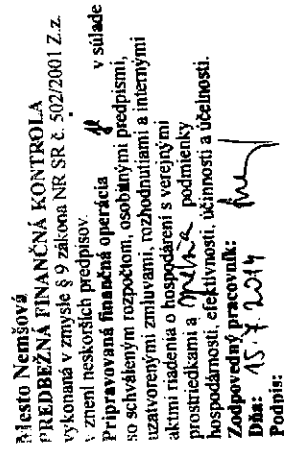 Mesto Nemšová
PREDBEŽNÁ FINANČNÁ KONTROLA
vykonaná v zmysle § 9 zákona NR SR č. 502/2001 Z.z.
v znení neskorších predpisov.
Pripravovaná finančná operácia je v súlade
so schváleným rozpočtom, osobitnými predpismi,
uzatvorenými zmluvami, rozhodnutiami a internými
aktmi riadenia o hospodárení s verejnými
prostriedkami a spĺňa podmienky
hospodárnosti, efektívnosti, účinnosti a účelnosti.
Zodpovedný pracovník:
Dňa: 15.7.2014
Podpis: